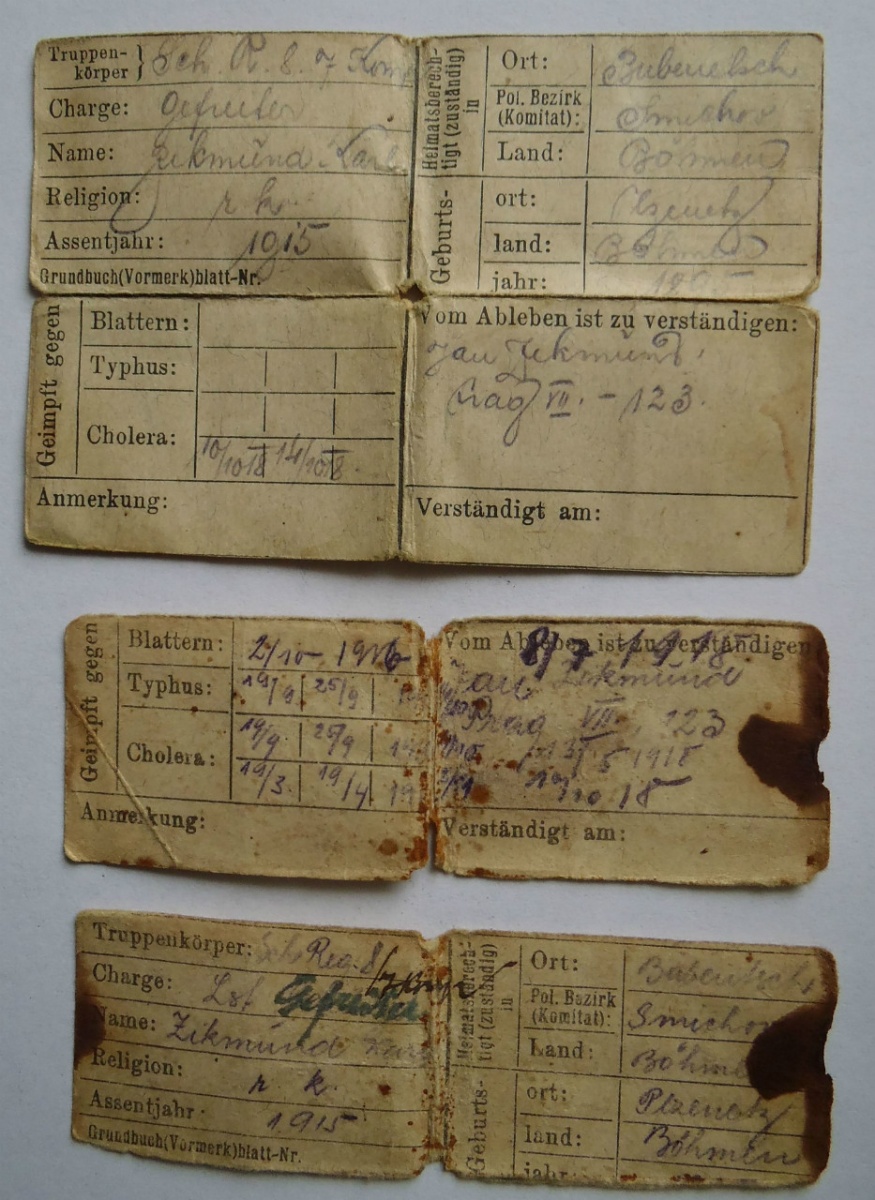 Truppenkörper } Sch. R. 8. 7 Komp
Charge: Gefreiter
Name: Zikmund Karl
Religion: r k.
Assentjahr: 1915
Grundbuch(Vormerk)blatt-Nr.
Heimatsberechtigt (zuständig) in
Ort: Bubenetsch
Pol. Bezirk (Komitat): Smichov
Land: Böhmen
Geburts-
ort: Plzenetz
land: Böhmen
jahr:
Geimpft gegen
Blattern:
Typhus:
Cholera:
10/10 18 14/10 18.
Anmerkung:
Vom Ableben ist zu verständigen:
Jan Zikmund.
Prag VII. - 123.
Verständigt am:
Geimpft gegen
Blattern: 2/10 1916
Typhus: 19/9 25/9
Cholera: 19/9 25/9
19/3. 19/4
Anmerkung:
Vom Ableben ist zu verständigen
8/7 1918.
Jan Zikmund
Prag VII., 123
5 1918
10 18
Verständigt am:
Truppenkörper: Sch Reg. 8/
Charge: Lst Gefreiter
Name: Zikmund Karl
Religion: r k.
Assentjahr 1915
Grundbuch(Vormerk)blatt-Nr.
Heimatsberechtigt (zuständig) in
Ort: Bubentsch
Pol. Bezirk (Komitat): Smichov
Land: Böhmen
Geburts-
ort: Plzenetz
land: Böhmen
jahr: